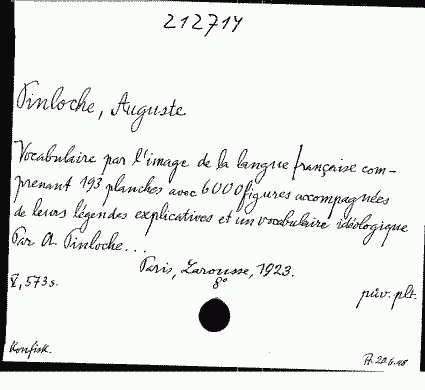 212714
Pinloche, Auguste
Vocabulaire par l'image de la langue française com-
prenant 193 planches avec 6000 figures accompagnées
de leurs légendes explicatives et un vocabulaire idéologique
Par A. Pinloche...
Paris, Larousse, 1923.
8°
V, 573 s.
pův. plt.
Konfisk.
22.6.48